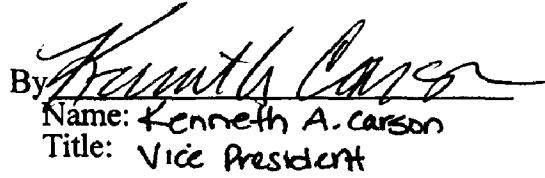 By Kenneth A. Carson
Name: Kenneth A. Carson
Title: Vice President